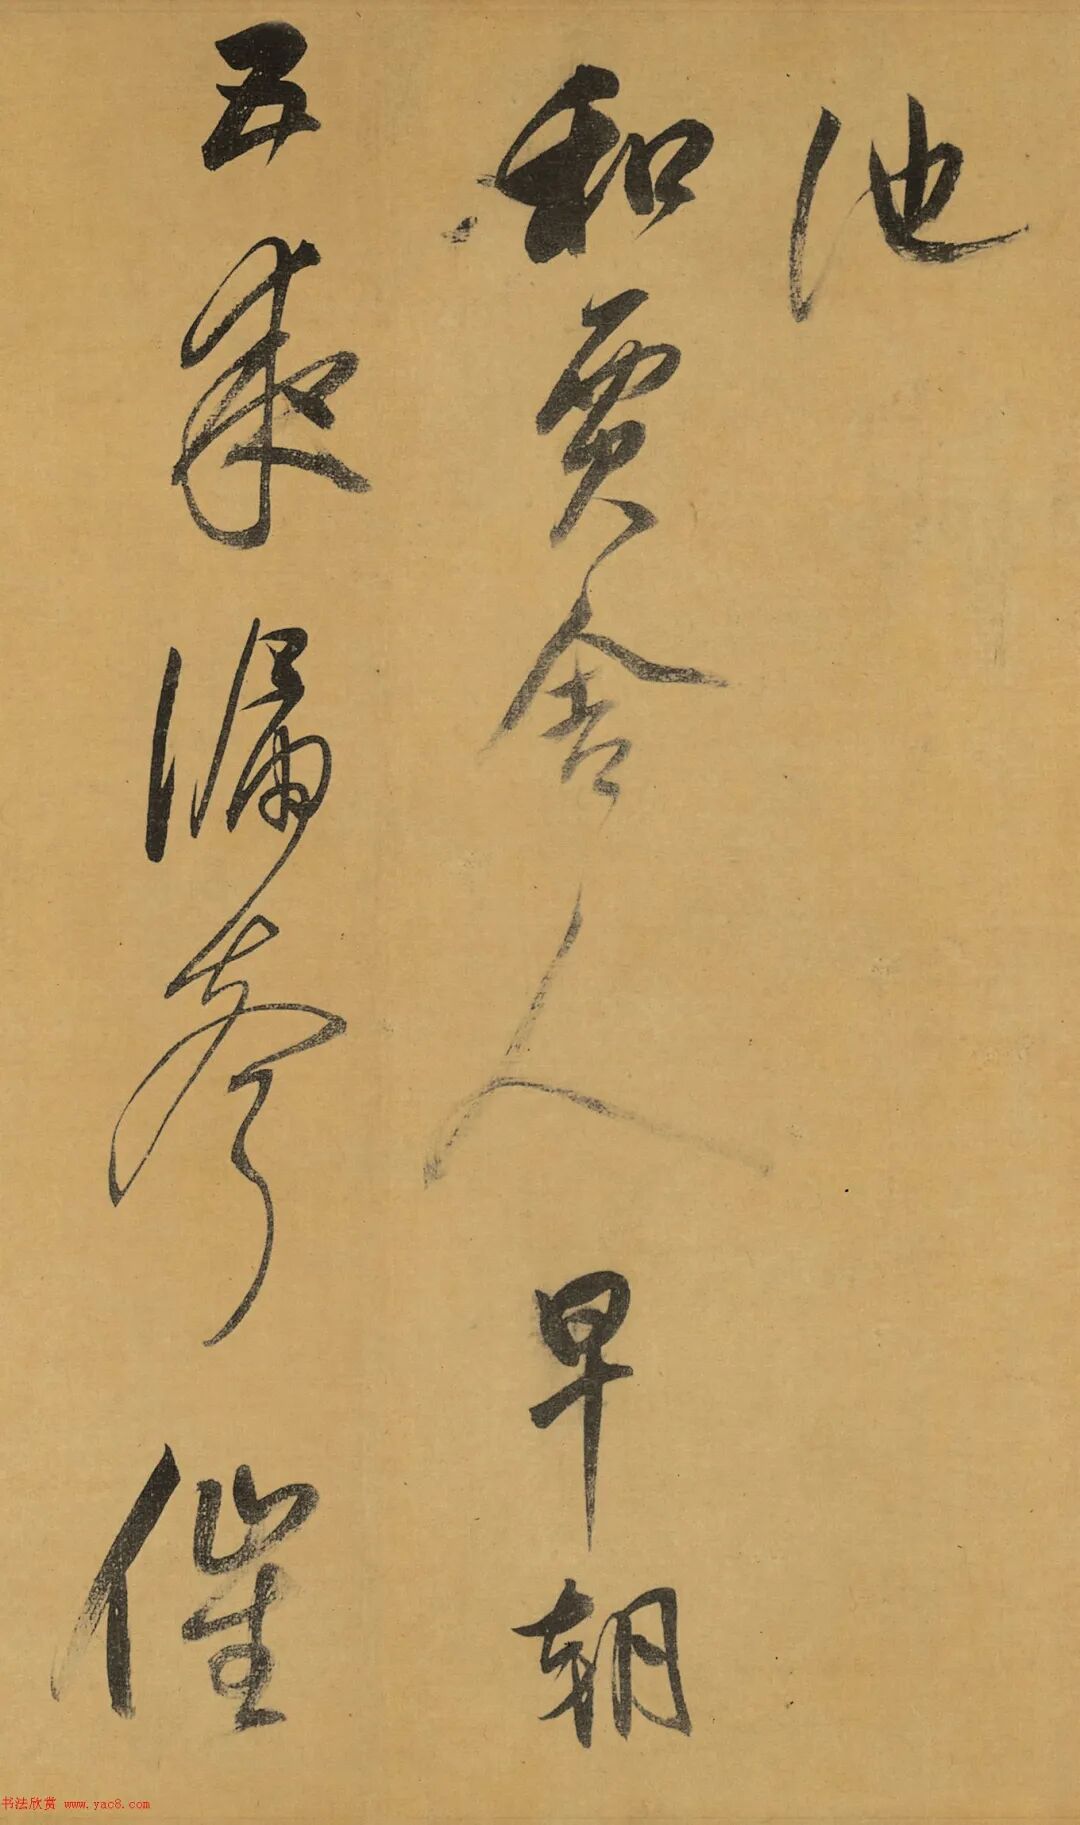 池
和贾舍人早朝
五夜漏声催
书法欣赏 www.yac8.com